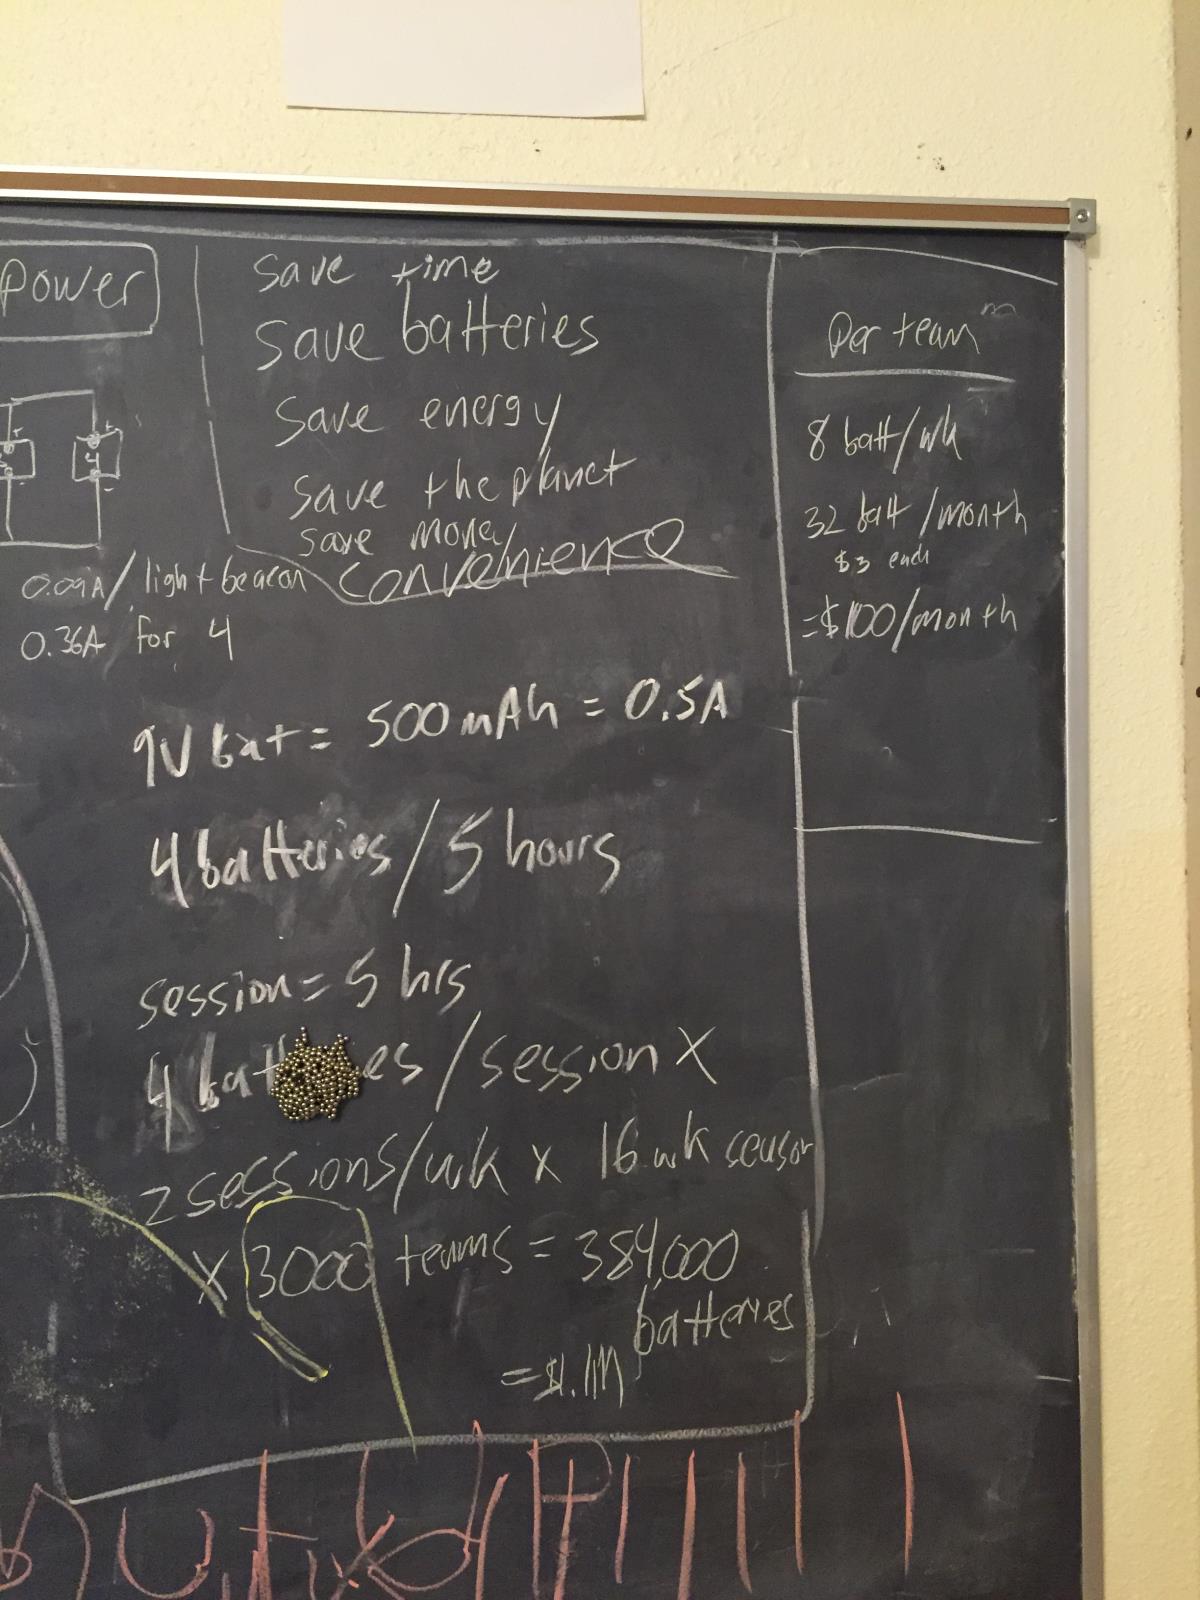 Power
save time
save batteries
save energy
save the planet
save money
convenience
0.09A/light beacon
0.36A for 4
9V bat = 500mAh = 0.5A
4 batteries / 5 hours
session = 5 hrs
4 bat es / session X
2 sessions/wk x 16 wk season
X 3000 teams = 384,000
batteries
= $1.1M
Per team
8 batt/wk
32 batt /month
$3 each
= $100/month